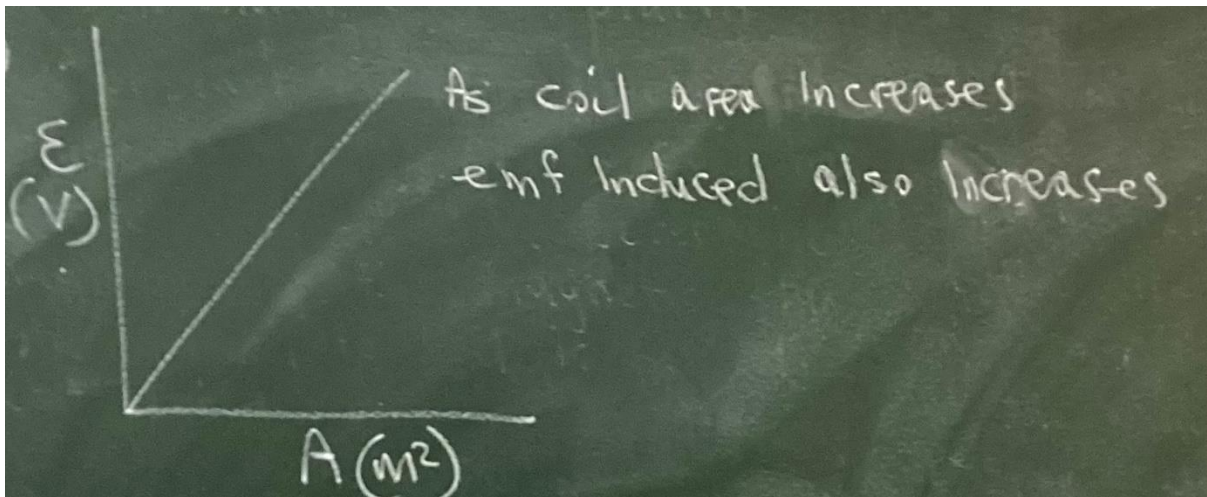 As coil area Increases
emf Induced also Increases
ε
(V)
A (m²)